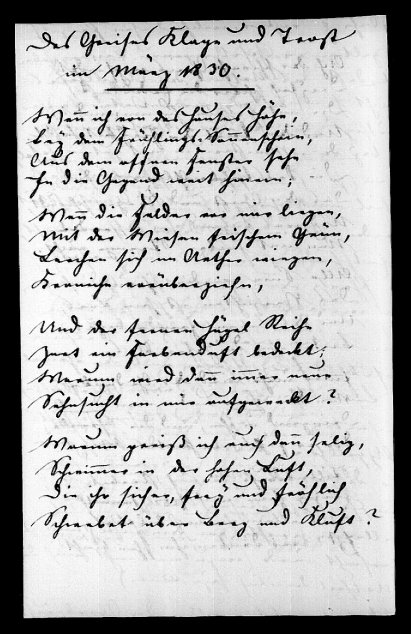 Des Greises Klage und Trost
im März 1830.
Wenn ich von des Hauses Höhe,
bey dem Frühlings-Sonnenschein,
Aus dem offnen Fenster sehe
In die Gegend weit hinein;
Wenn die Felder vor mir liegen,
Mit der Wiesen frischem Grün,
Lerchen sich im Aether wiegen,
Kraniche vorüberziehn,
Und der fernen Hügel Reihe
Zart ein Farbenduft bedeckt;
Warum wird dann immer neue
Sehnsucht in mir aufgeweckt?
Warum preiß ich euch dann selig,
Schwimmer in der hohen Luft,
Die ihr sicher, frey und fröhlich
Schwebet über Berg und Kluft?